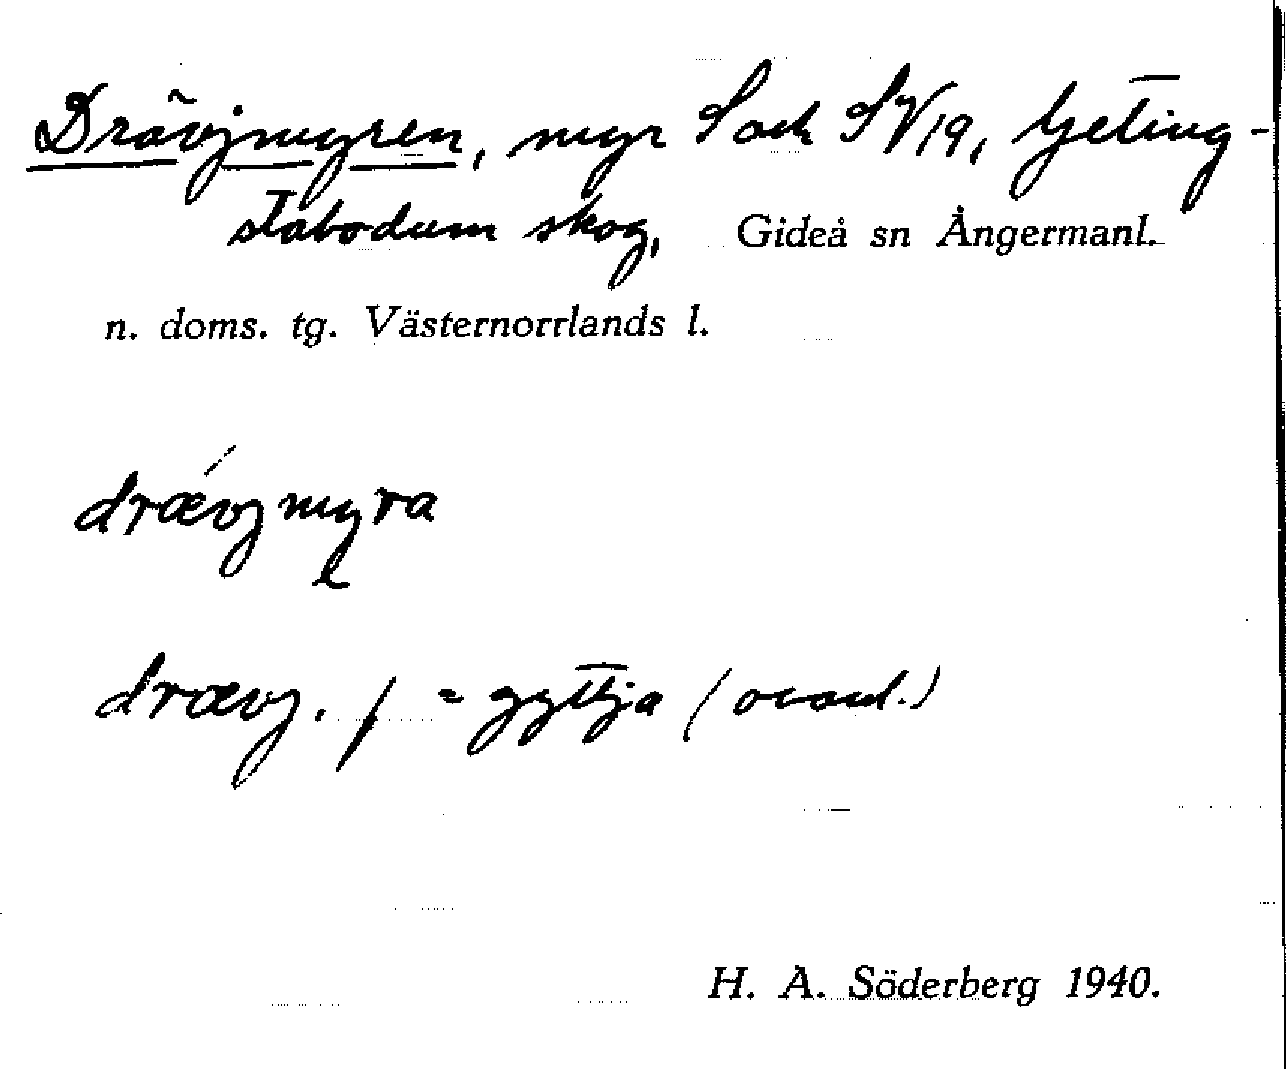 Drävjmyren, myr S och SV 19, Geting-
stabodum skog, Gideå sn Ångermanl.
n. doms. tg. Västernorrlands l.
drævjmyra
drævj. f = gyttja (ovanl.)
H. A. Söderberg 1940.